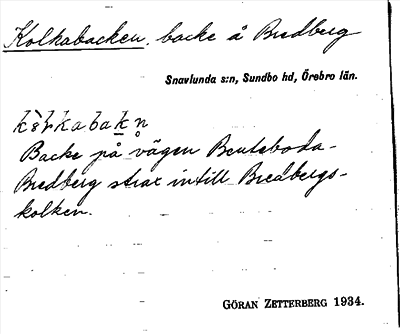 Kolkabacken, backe å Bredberg
Snavlunda s:n, Sundbo hd, Örebro län.
Backe på vägen Bentaboda-
Bredberg strax intill Bredbergs-
kolken.
GÖRAN ZETTERBERG 1934.